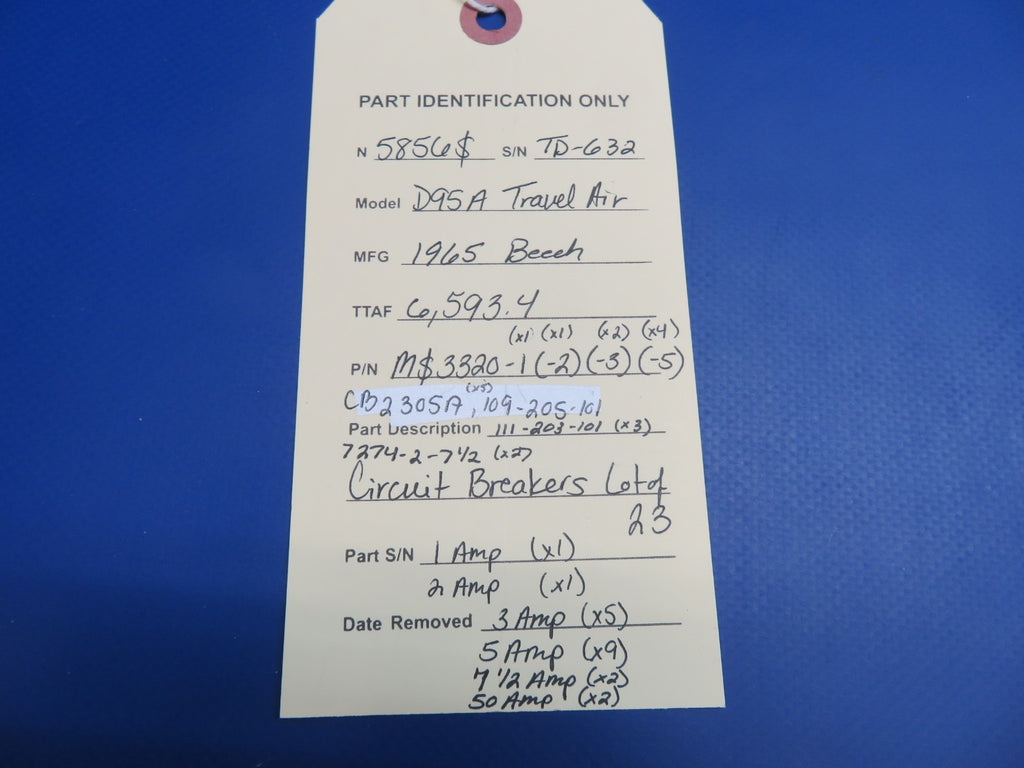 PART IDENTIFICATION ONLY
N 5856$ S/N TD-632
Model D95A Travel Air
MFG 1965 Beech
TTAF 6,593.4
(x1) (x1) (x2) (x4)
P/N M$3320-1(-2)(-3)(-5)
(x5)
CB2305A, 109-205-101
Part Description 111-203-101 (x3)
7274-2-7 1/2 (x2)
Circuit Breakers Lot of
23
Part S/N 1 Amp (x1)
2 Amp (x1)
Date Removed 3 Amp (x5)
5 Amp (x9)
7 1/2 Amp (x2)
50 Amp (x2)